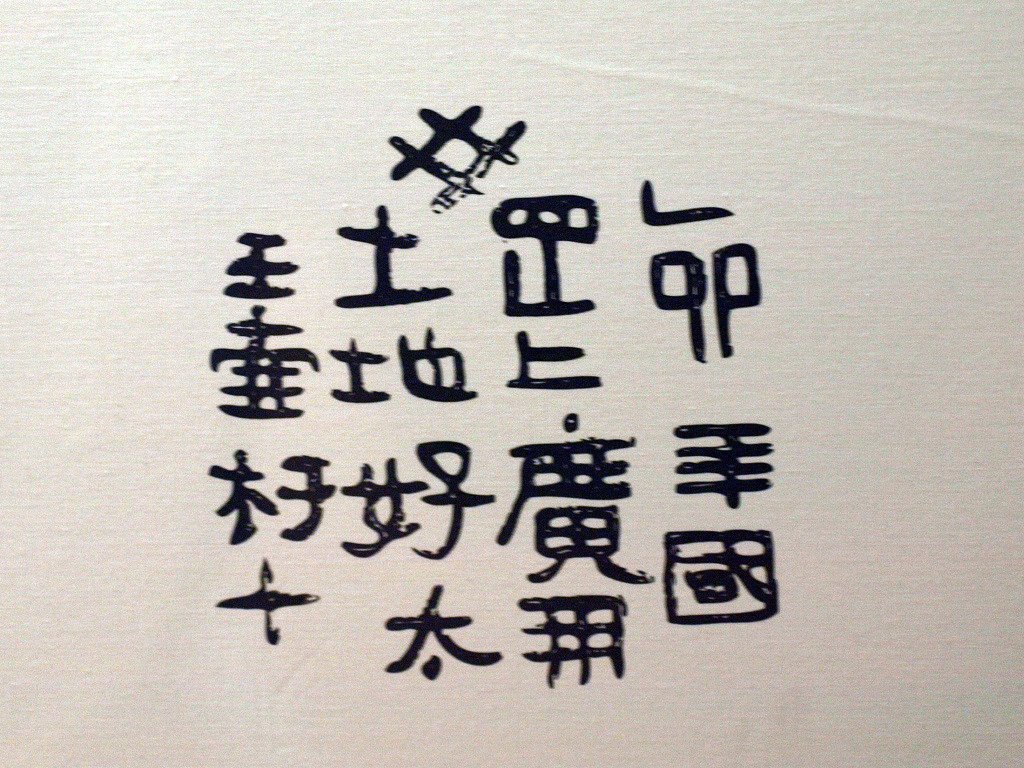 #
乙卯年國
罡上廣開
土地好太
王壺杅十